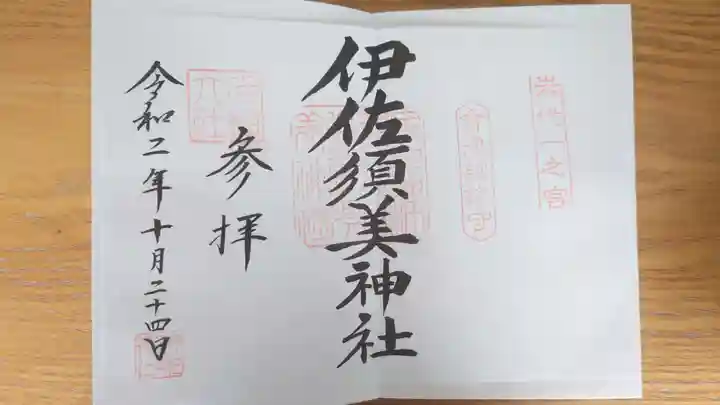 岩代一之宮
伊佐須美神社
参拝
令和二年十月二十四日